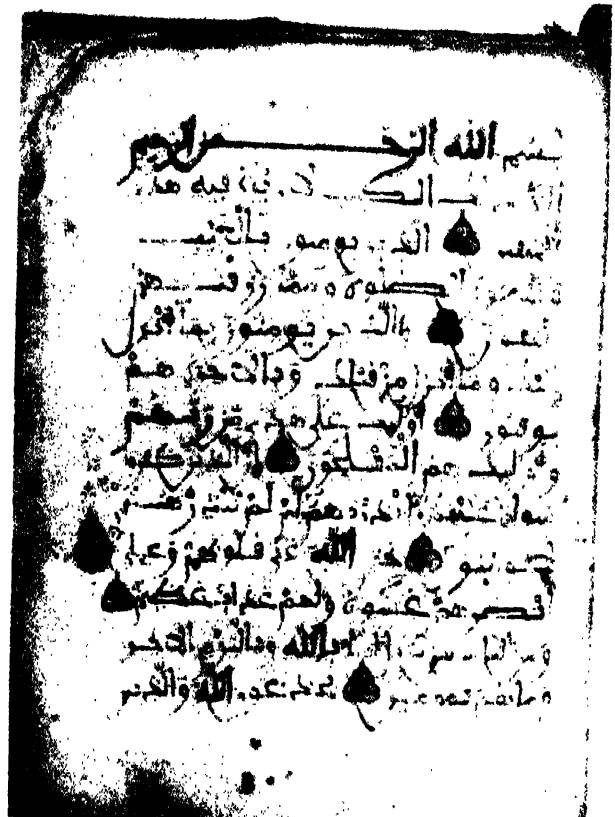 بسم الله الرحمن الرحيم
الكتب لا ريب فيه هدى
للمتقين الذين يومنون بالغيب
الصلوة ومما رزقنهم
ينفقون والذين يومنون بما أنزل
وما أنزل من قبلك وبالاخرة هم
يوقنون أولئك على هدى من ربهم
وأولئك هم المفلحون إن الذين كفروا
سواء عليهم أنذرتهم أم لم تنذرهم
لا يومنون ختم الله على قلوبهم وعلى
أبصرهم غشوة ولهم عذاب عظيم
ومن الناس من بالله وباليوم الاخر
وما هم بمومنين يخدعون الله والذين